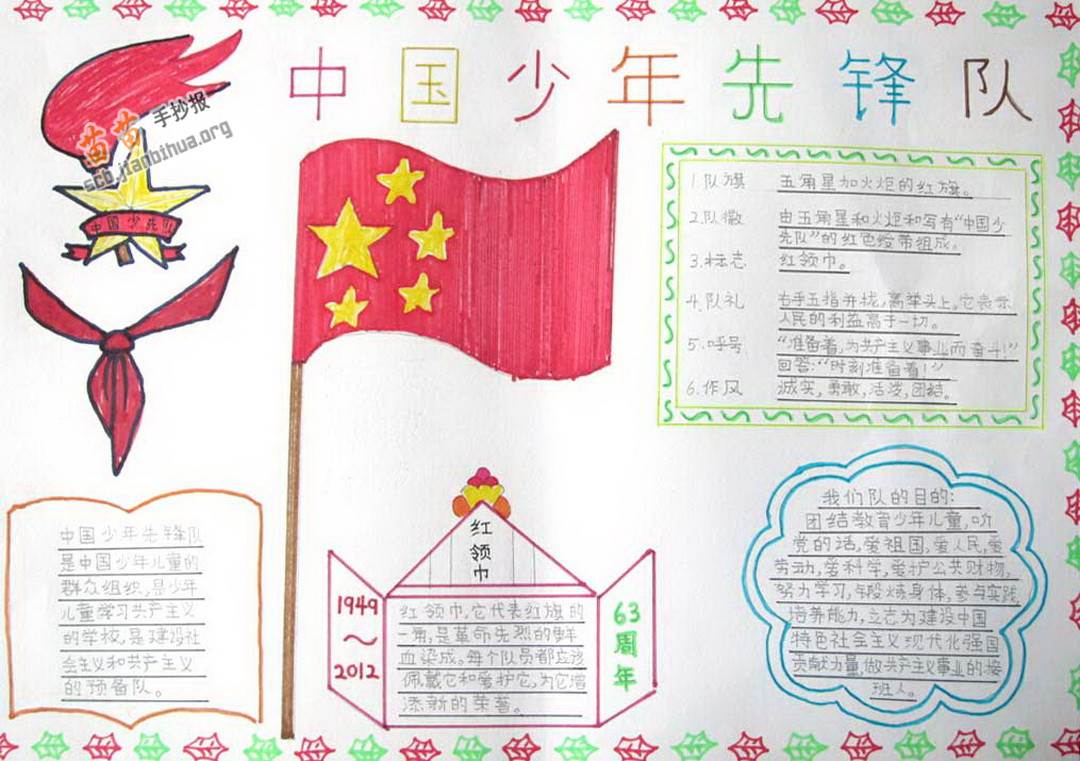 中国少年先锋队
苗苗手抄报
scb.jianbihua.org
中国少先队
1.队旗 五角星加火炬的红旗。
2.队徽 由五角星和火炬和写有“中国少
先队”的红色绶带组成。
3.标志 红领巾。
4.队礼 右手五指并拢,高举头上。它表示
人民的利益高于一切。
5.呼号 “准备着,为共产主义事业而奋斗!”
回答:“时刻准备着!”
6.作风 诚实,勇敢,活泼,团结。
中国少年先锋队
是中国少年儿童的
群众组织,是少年
儿童学习共产主义
的学校,是建设社
会主义和共产主义
的预备队。
红领巾
1949
~
2012
红领巾,它代表红旗的
一角,是革命先烈的鲜
血染成。每个队员都应该
佩戴它和爱护它,为它增
添新的荣誉。
63
周
年
我们队的目的:
团结教育少年儿童,听
党的话,爱祖国,爱人民,爱
劳动,爱科学,爱护公共财物,
努力学习,锻炼身体,参与实践,
培养能力,立志为建设中国
特色社会主义现代化强国
贡献力量,做共产主义事业的接
班人。